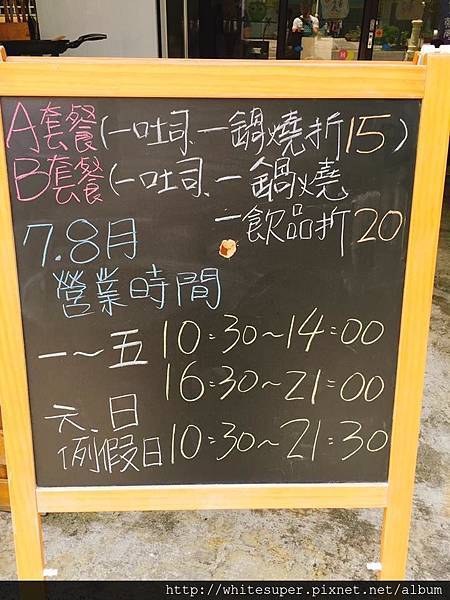 A套餐(一吐司、一鍋燒折15)
B套餐(一吐司、一鍋燒
一飲品折20
7.8月
營業時間
一~五 10:30~14:00
16:30~21:00
六.日
例假日 10:30~21:30
http://whitesuper.pixnet.net/album